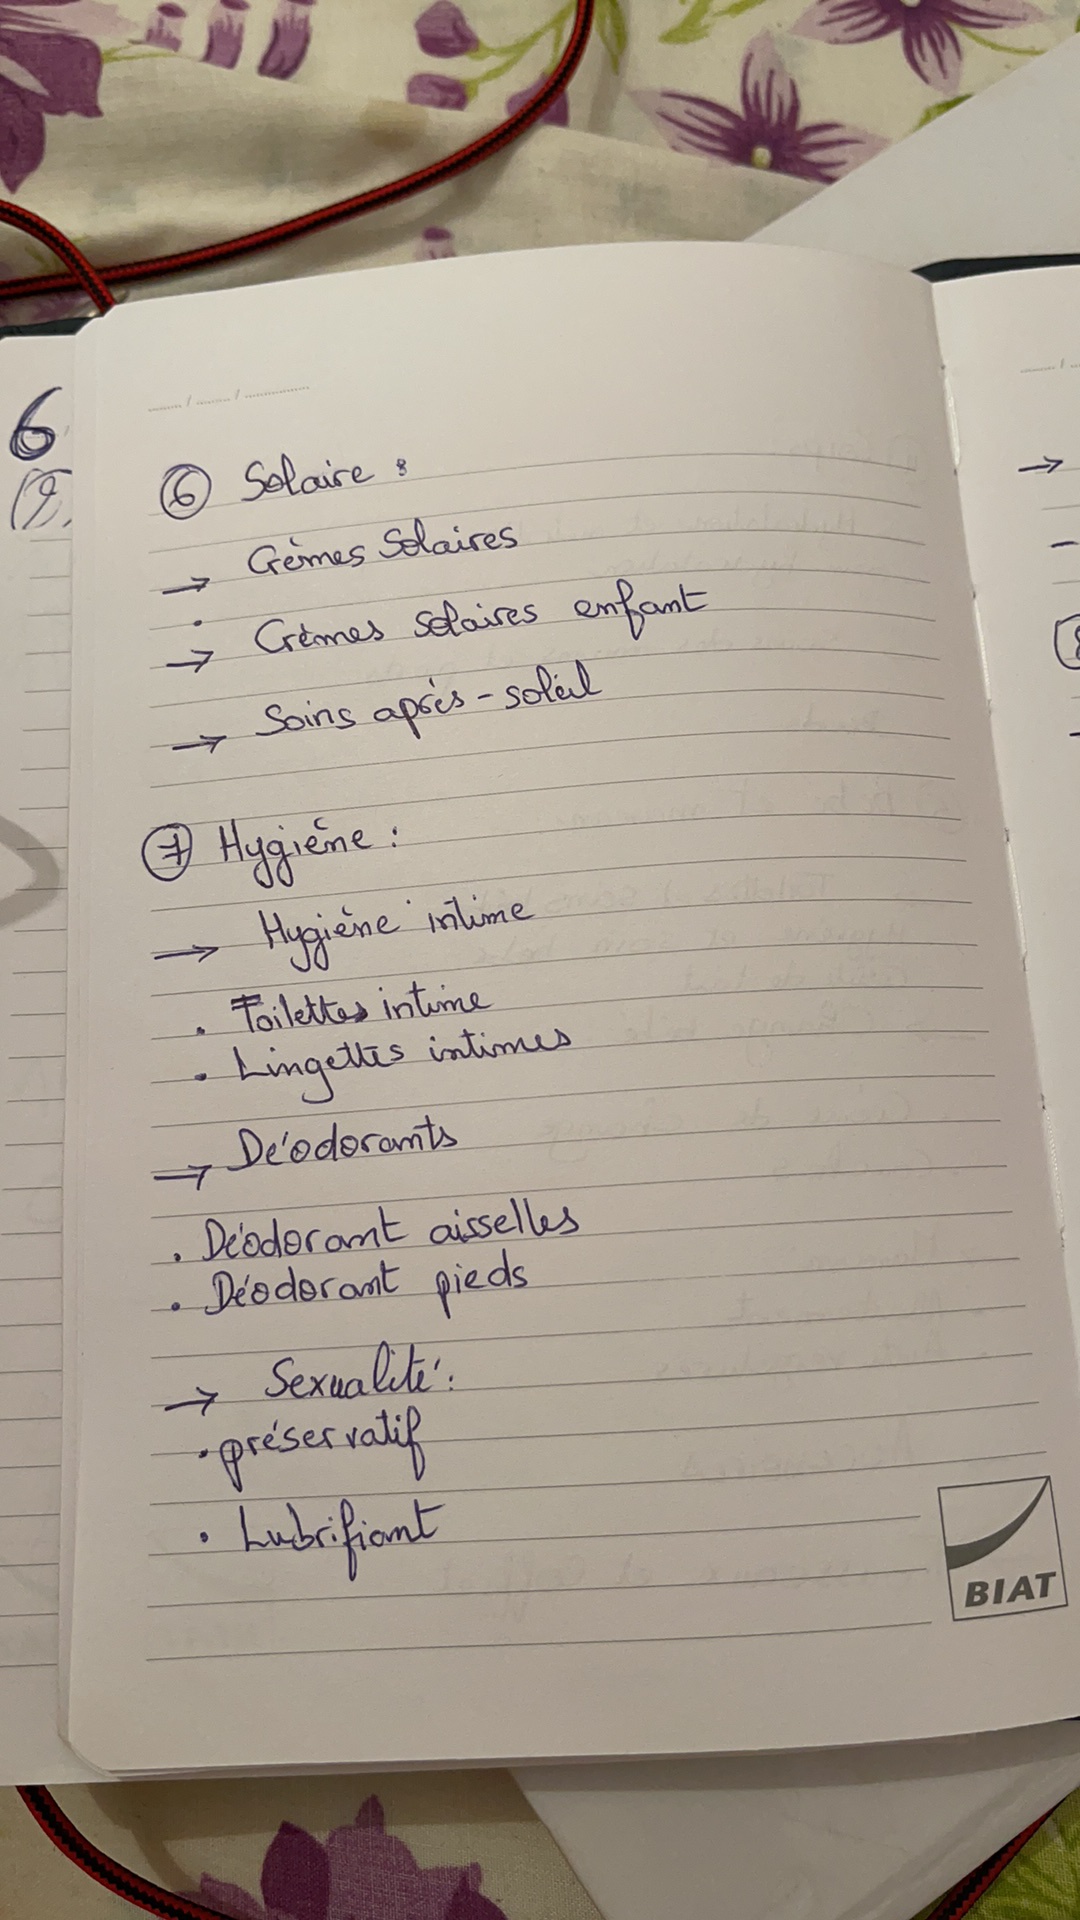 6
⑥ Solaire :
→ Crèmes Solaires
→ Crèmes solaires enfant
→ Soins après-soleil
⑦ Hygiène :
→ Hygiène intime
. Toilettes intime
. Lingettes intimes
→ Déodorants
. Déodorant aisselles
. Déodorant pieds
→ Sexualité :
. préservatif
. Lubrifiant
BIAT